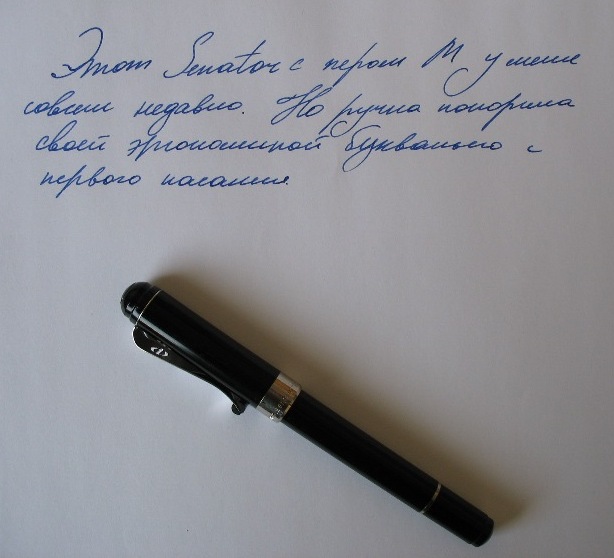 Этот Senator с пером M у меня
совсем недавно. Но ручка покорила
своей эргономикой буквально с
первого касания.